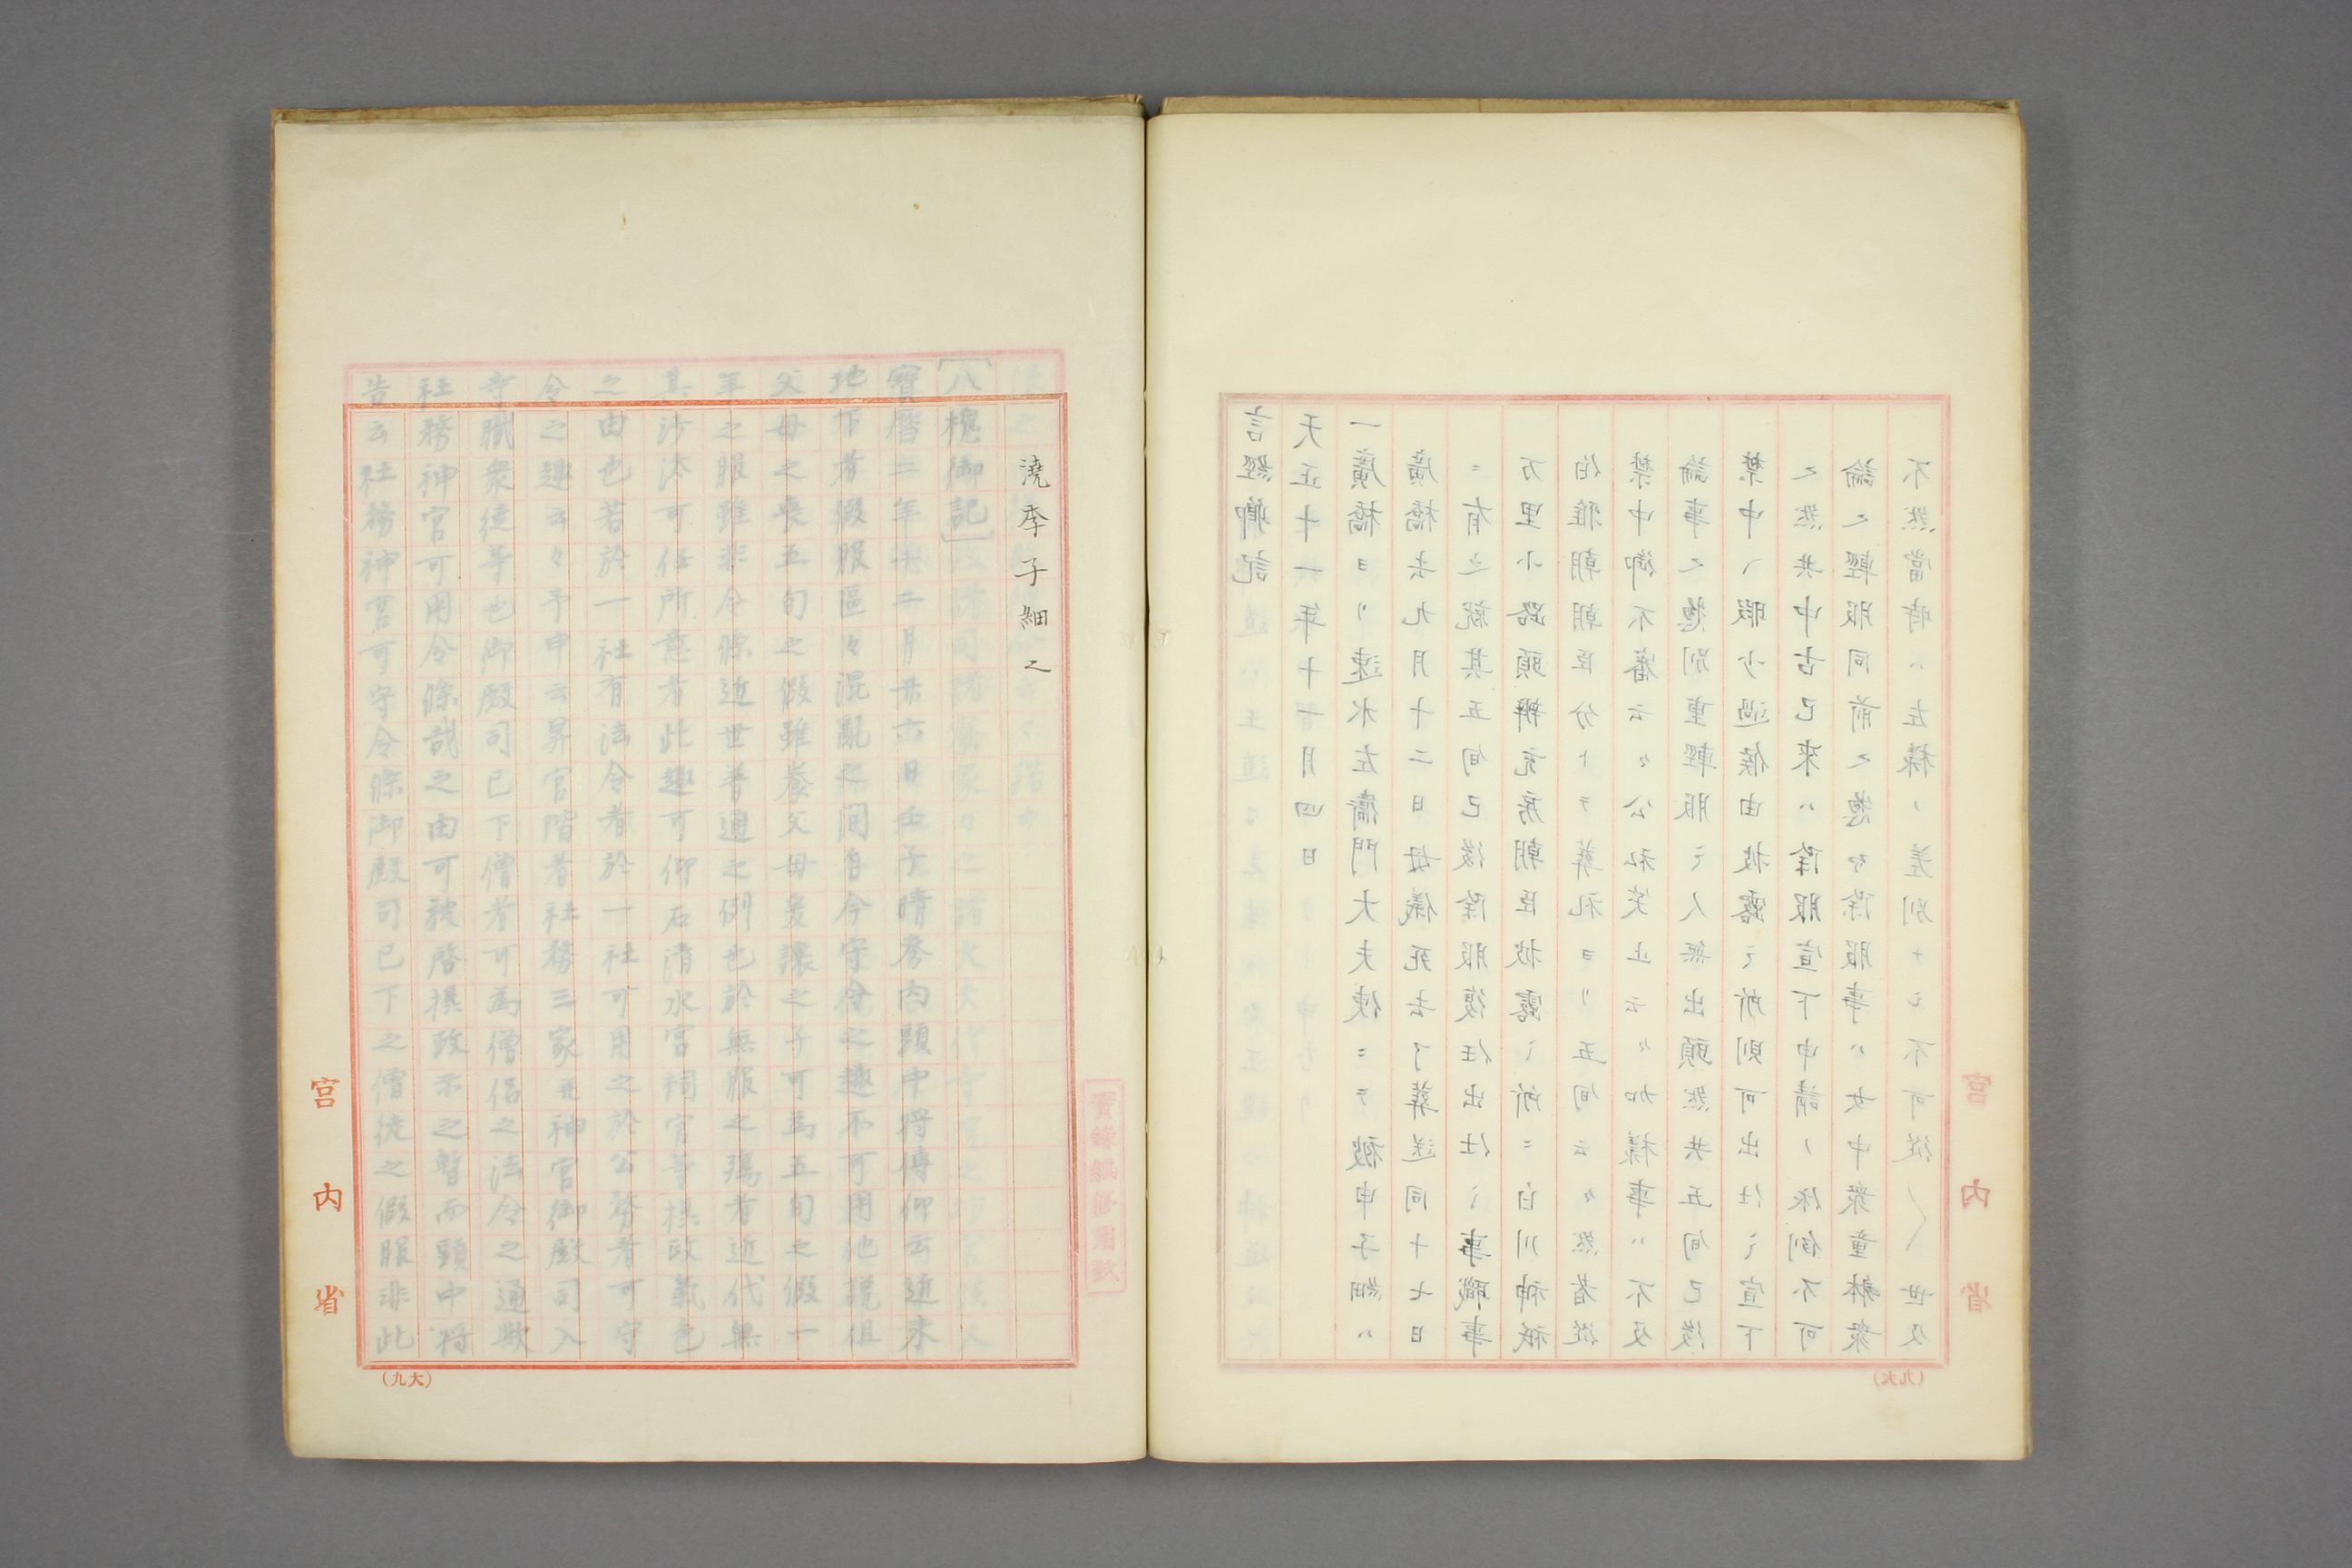 言經卿記
天正十一年十一月四日
一廣橋ヨリ速水左衛門大夫使ニテ被申子細ハ
廣橋去九月十二日母儀死去了葬送同十七日
ニ有之就其五旬已後除服復任出仕ミ事職事
万里小路頭辨充房朝臣披露ミ所ニ白川神祇
伯雅朝朝臣分トテ葬礼ヨリ五旬云々然者從
禁中御不審云々公私笑止云々加樣事ハ不及
論事之惣別重輕服ミ人無出頭然共五旬已後
禁中ヘ暇少過候由披露ミ所則可出仕ミ宣下
之然共中古已來ハ除服宣下申請ノ條例不可
論之輕服同前之惣而除服事ハ女中衆童躰衆
不然當時ハ左樣ノ差別ナシ不可從〱世及
宮内省
(九大)
澆季子細之
〔八槐御記〕
寶暦二年十二月廿六日壬子晴參内頭中將傳仰云近来
地下者假服區々混亂之間自今守令之趣不可用他説但
父母之喪五旬之假雖養父母爰譲之子可為五旬之假一
年之服雖非令條近世普通之例也於無服之殤者近代無
其沙汰可任所意者此趣可仰石清水宮祠官等摂政氣色
之由也若於一社有法令者於一社可用之於公務者可守
令之趣云々予申云昇官階者社務三家并神官御殿司入
寺職衆徒等也御殿司已下僧者可為僧侶之法令之通歟
社務神官可用令條哉之由可被啓摂政示之暫而頭中将
告云社務神官可守令條御殿司已下之僧徒之假服非此
宮内省
(九大)
實錄編修用紙